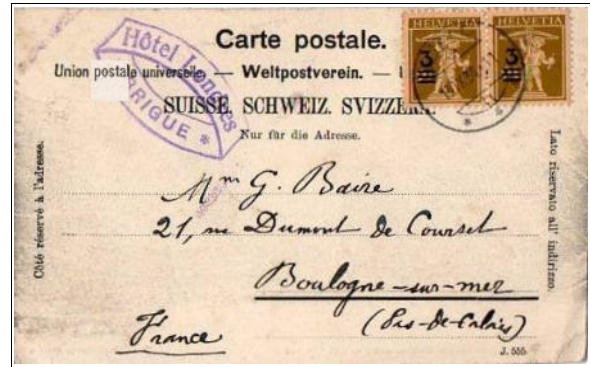 Carte postale.
Union postale universelle — Weltpostverein. —
SUISSE. SCHWEIZ. SVIZZERA.
Nur für die Adresse.
Hôtel Londres
BRIGUE *
HELVETIA HELVETIA
3 3
Côté réservé à l'adresse.
Lato riservato all' indirizzo.
Mme G. Baire
21, rue Dumont de Courset
Boulogne-sur-mer
(Pas-de-Calais)
France
J. 555